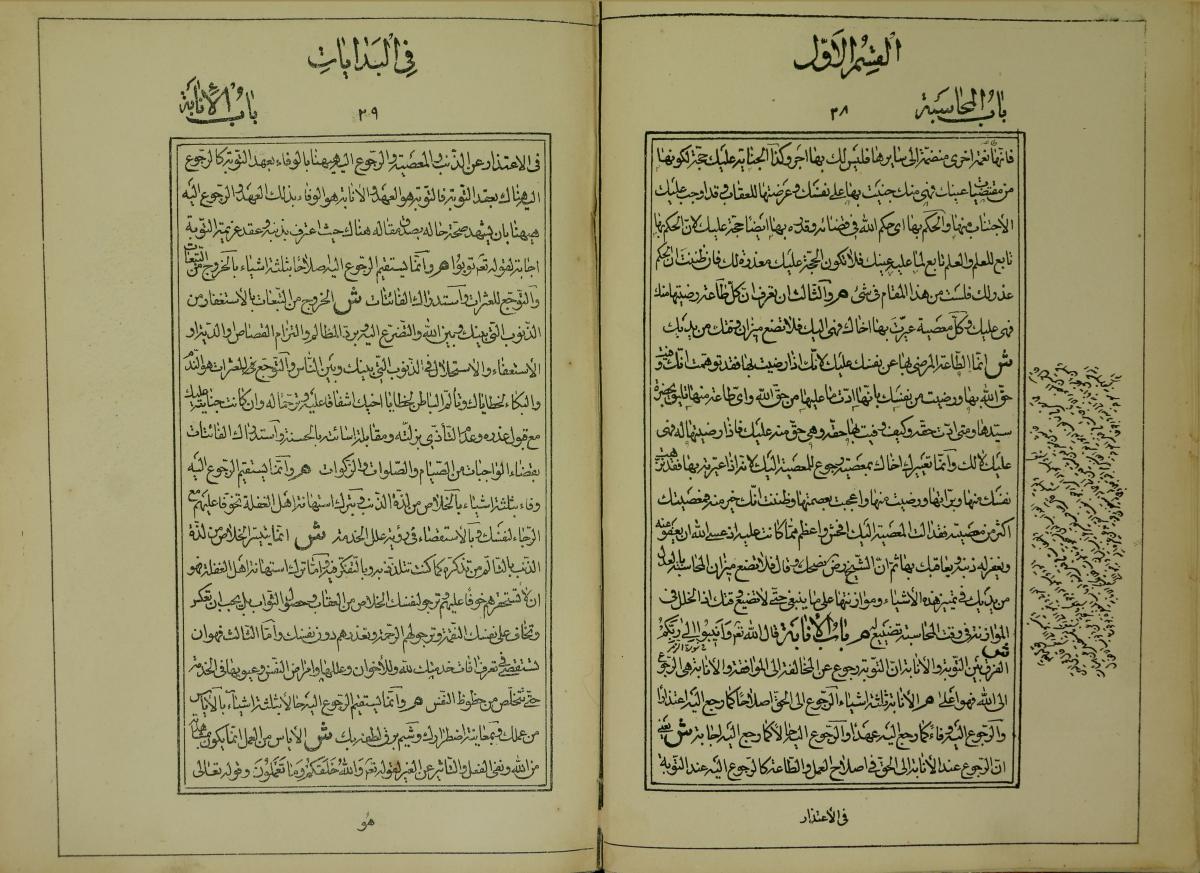 القسم الأوّل
باب المحاسبة
٣٨
فانّها نعمة اخرى منضمّة الى سايرها فليس لك بها اجر وكذا الجناية عليك حجّة لكونها
من مقتضيات عينك وهى منك جنيت بها على نفسك وعرضتها للعقاب وقد اوجب عليك
الأجتناب منها والحكم بها اى حكم الله فى قضائه وقدره بها ايضا حجة عليك لانّ الحكم بها
تابع للعلم والعلم تابع لما عليه عينك فلا تكون الحجّة عليك معذرة لك فان ظننت ان الحكم
عذر لك فلست من هذا المقام فى شئ م والثالث ان تعرف ان كلّ طاعة رضيتها منك
فهى عليك وكلّ معصية عيّرت بها اخاك فهى اليك فلا تضع ميزان وقتك من يديك
ش انّما الطّاعة المرضى بها عن نفسك عليك لانّك اذا رضيت بها فقد توهمت انّك وفيت
حقّ الله بها ورضيت من نفسك بانّها ادّت ما عليها من حق الله واى طاعة منها تليق بحضرة
سيّدها ومتى ادّت حقّه وكيف وفيت بها حقّه وهى حق منه عليك فاذا رضيتها له فهى
عليك لا لك وانّما تعييرك اخاك بمعصية رجوع للمعصية اليك لانّك اذا عيرته بها فقد
نفسك منها وبراتها ورضيت منها واعجبت بعصمتها وظننت انّك خير منه فمعصيتك
اكثر من معصيته فقد الت المعصية اليك افحش واعظم ممّا كانت عليه اذ عسى الله ان يعفو عنه
ويغفر له ذنبه ويعاقبك بها ثم انّ الشّيخ رض نصحك وقال فلا تضع ميزان المحاسبة والعدل
من يديك فى تمييز هذه الأشياء وموازنتها على ما ينبغى حتّى لا تضيع وقتك اذ الخلل فى
الموازنة فى وقت المحاسبة تضييع له م باب الأنابة قال الله تع وانيبوا الى ربّكم
ش الفرق بين التّوبة والأنابة ان التّوبة رجوع عن المخالفة الى الموافقة والأنابة هى الرّجوع
الى الله فهو اعلى م الأنابة ثلثة اشياء الرّجوع الى الحق اصلاحا كما رجع اليه اعتذارا
والرّجوع اليه وفاء كما رجع اليه عهدا والرجوع اليه حالا كما رجع اليه اجابة ش يعنى
انّ الرّجوع عند الأنابة الى الحقّ فى اصلاح العمل والطّاعة كالرجوع اليه عند التّوبة
فى الأعتذار
فى البدايات
باب الأنابة
٣٩
فى الاعتذار عن الذّنب والمعصية والرجوع اليه هيهنا بالوفاء بعهد التّوبة كالرجوع
اليه هناك بعقد التّوبة فالتّوبة هو العهد والأنابة هو الوفاء بذلك العهد والرجوع اليه
هيهنا بان يشهد صحّة حاله بصدق مقاله هناك حيث اعترف بذنبه وعقد عزيمة التّوبة
اجابة لقوله تع توبوا م وانّما يستقيم الرّجوع اليه اصلاحا بثلثة اشياء بالخروج من التّبعات
والتّوجّع للعثرات واستدراك الفائتات ش الخروج من التّبعات بالأستغفار من
الذّنوب التى بينك وبين الله والتّضرع اليه وبردّ المظالم والتزام القصاص والدّية او
الأستعفاء والاستحلال فى الذّنوب التى بينك وبين النّاس والتّوجّع فى العثرات هو النّدم
والبكاء لخطاياك وتألم الباطن لخطايا اخيك اشفاقا عليه وترحّما له وان كانت جناية عليك
مع قبول عذره وعدم التأذّى بزلّته ومقابلة اسائته بالحسنة واستدراك الفائتات
بقضاء الواجبات من الصّيام والصّلوات والزّكوات م وانّما يستقيم الرّجوع اليه
وفاء بثلثة اشياء بالخلاص من لذّة الذّنب وبترك استهانة اهل الغفلة تخوّفا عليهم مع
الرّجاء لنفسك وبالأستقصاء فى رؤية علل الخدمة ش انّما يتيسر الخلاص من لذّة
الذّنب بالتّالّم من تذكره كما كنت تتلذذ به وبالتفكّر فيه وامّا ترك استهانة اهل الغفلة فهو
ان لا تستحقرهم خوفا عليهم وترجو لنفسك الخلاص من العقاب وحصول الثّواب بل يجب ان تعكس
وتخاف على نفسك النّقمة وترجو لهم الرّحمة وتعذرهم دون نفسك وامّا الثالث فهو ان
تستقصى فى تعرف افات خدمتك لله وللأخوان وعللها وامراض النّفس وعيوبها فى الخدمة
حتّى تتخلّص من حظوظ النّفس م وانّما يستقيم الرّجوع اليه حالا بثلثة اشياء بالأياس
من عملك وبمعاينة اضطرارك وشيم برق لطفه بك ش الأياس من العمل انّما يكون بمشاهدة
من الله ونفى الفعل والتأثير عن الغير لقوله تع والله خلقكم وما تعملون وقوله تعالى
هو